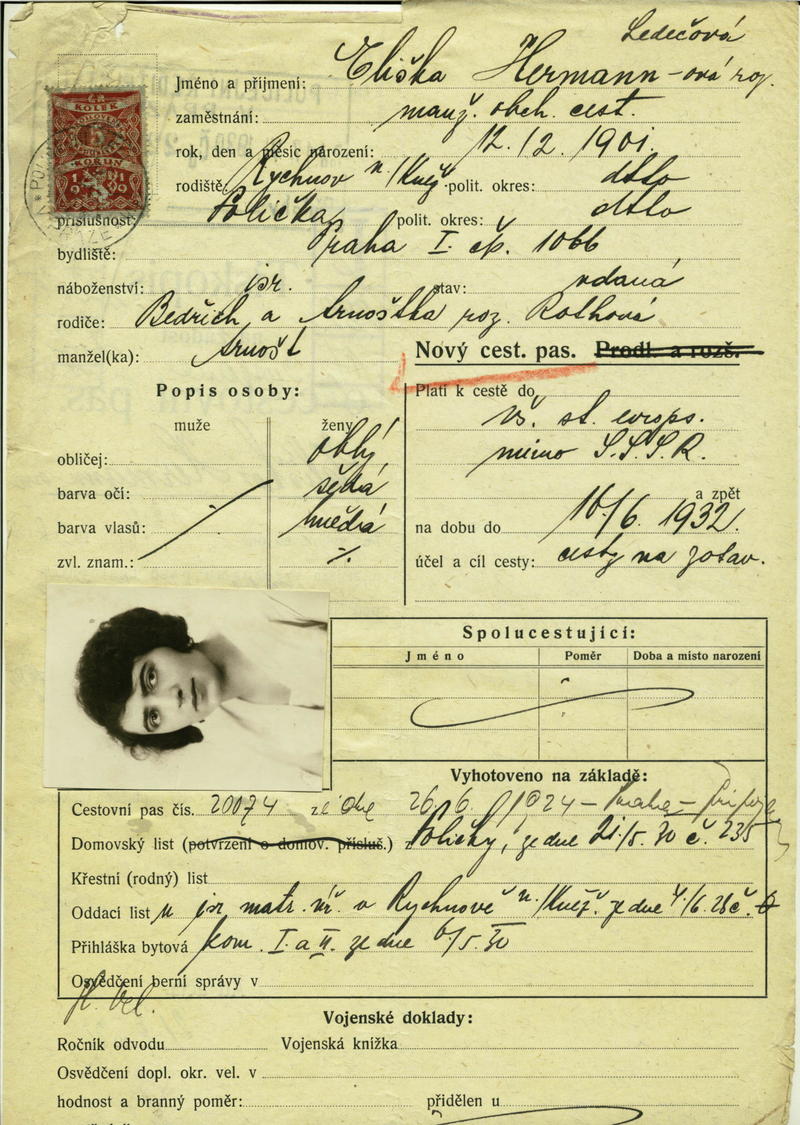 Ledečová
Jméno a příjmení: Eliška Hermann-ová roz.
zaměstnání: manž. obch. cest.
rok, den a měsíc narození: 12./2. 1901.
rodiště: Rychnov n/Kněž. polit. okres: dtto
příslušnost: Polička polit. okres: dtto
bydliště: Praha I. čp. 1066
náboženství: isr. stav: vdaná
rodiče: Bedřich a Arnoštka roz. Rothová
manžel(ka): Arnošt
Nový cest. pas. Prodl. a rozš.
Popis osoby:
muže ženy
obličej: oblý
barva očí: šedá
barva vlasů: hnědá
zvl. znam.: ·/.
Platí k cestě do
vš. st. evrops.
mimo S.S.S.R.
a zpět
na dobu do 16/6. 1932.
účel a cíl cesty: cesty na zotav.
KOLEK
5
KORUN
19 19
Spolucestující:
Jméno Poměr Doba a místo narození
Vyhotoveno na základě:
Cestovní pas čís. 20074 ze dne 26./6. 1924 – Praha –
Domovský list (potvrzení o domov. přísluš.) z Poličky, ze dne 21/5. 30 č. 235
Křestní (rodný) list
Oddací list u isr. matr. úř. v Rychnově n/Kněž. ze dne 4/6. 28 č.
Přihláška bytová kom. I. a II. ze dne 6/5. 30
Osvědčení berní správy v
Vojenské doklady:
Ročník odvodu Vojenská knížka
Osvědčení dopl. okr. vel. v
hodnost a branný poměr: přidělen u